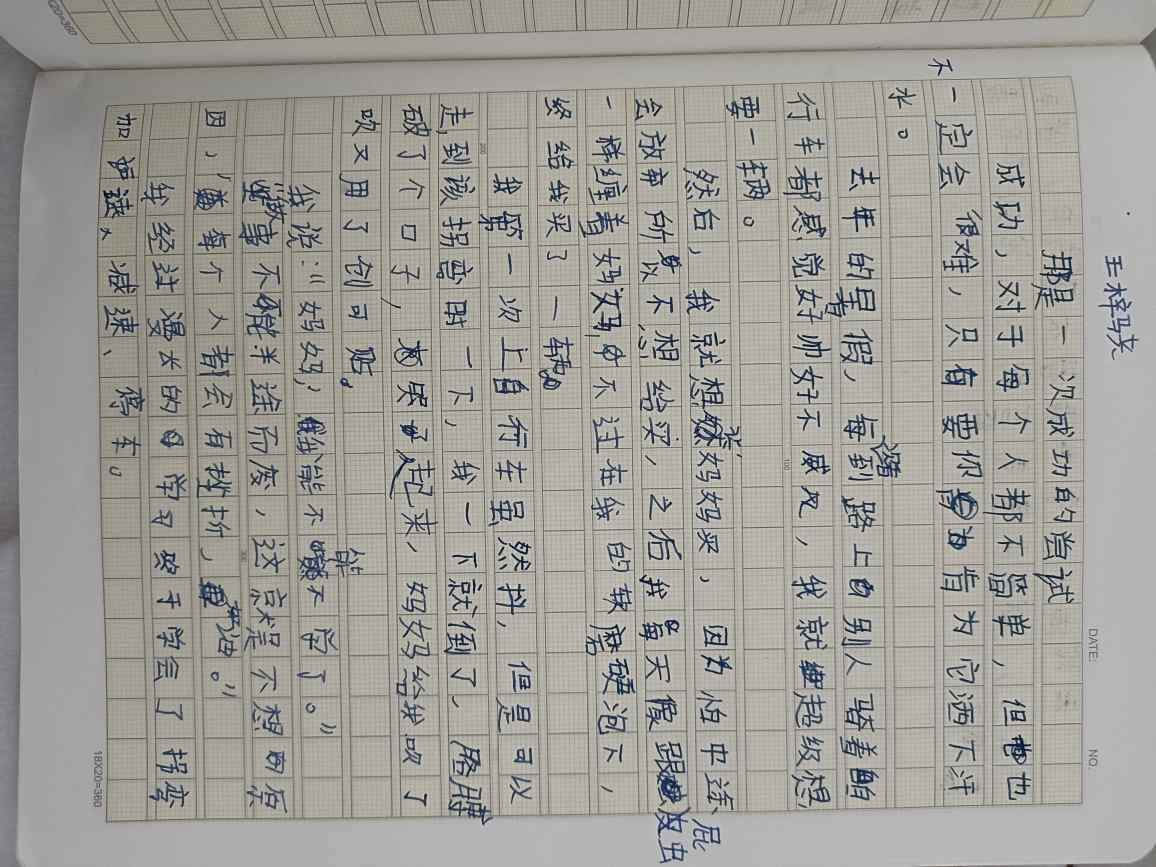 20=360
王梓尧
DATE:
NO.
那是一次成功的尝试
成功，对于每个人都不简单，但也
不一定会很难，只要你肯为它洒下汗
水。
去年的暑假，每到路上看别人骑着自
行车都感觉好帅好不威风，我就超级想
要一辆。
然后，我就想求妈妈买，因为怕中途
会放弃所以不想给买，之后我每天像跟屁虫
一样缠着妈妈，不过在我的软磨硬泡下，
终给我买了一辆。
我第一次上自行车虽然抖，但是可以
走，到该拐弯时一下，我一下就倒了，胳膊
破了个口子，起来，妈妈给我吹了
吹又用了创可贴。
我说：“妈妈，能不能不学了。”
“做事不能半途而废，这就是不想的原
因，每个人都会有挫折，加油。”
我经过漫长的学习终于学会了拐弯
加速、减速、停车。
100
200
300
18X20=360